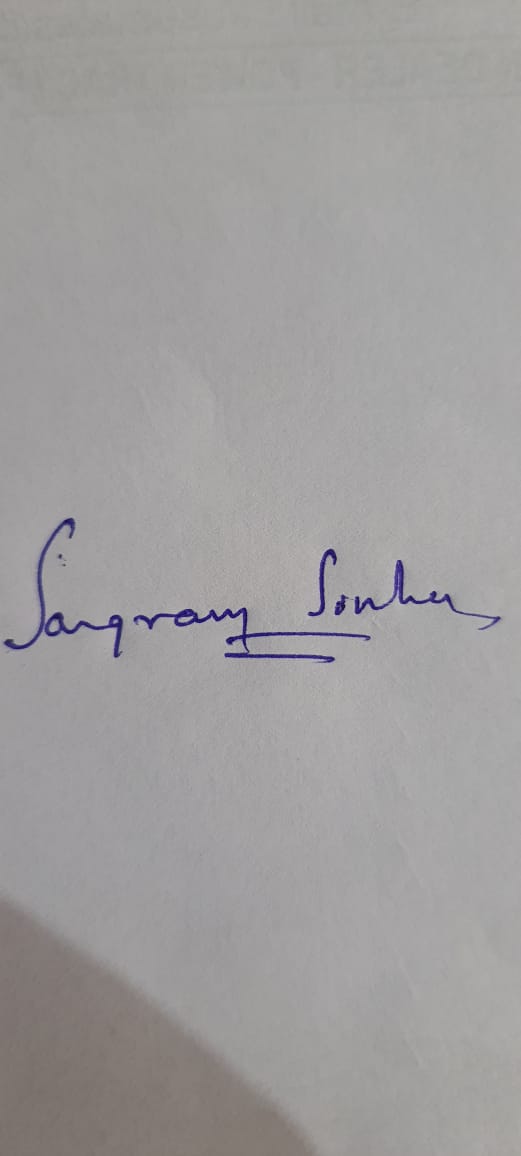 Sangram Sinha